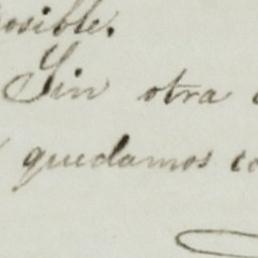 posible.
Sin otra
quedamos co